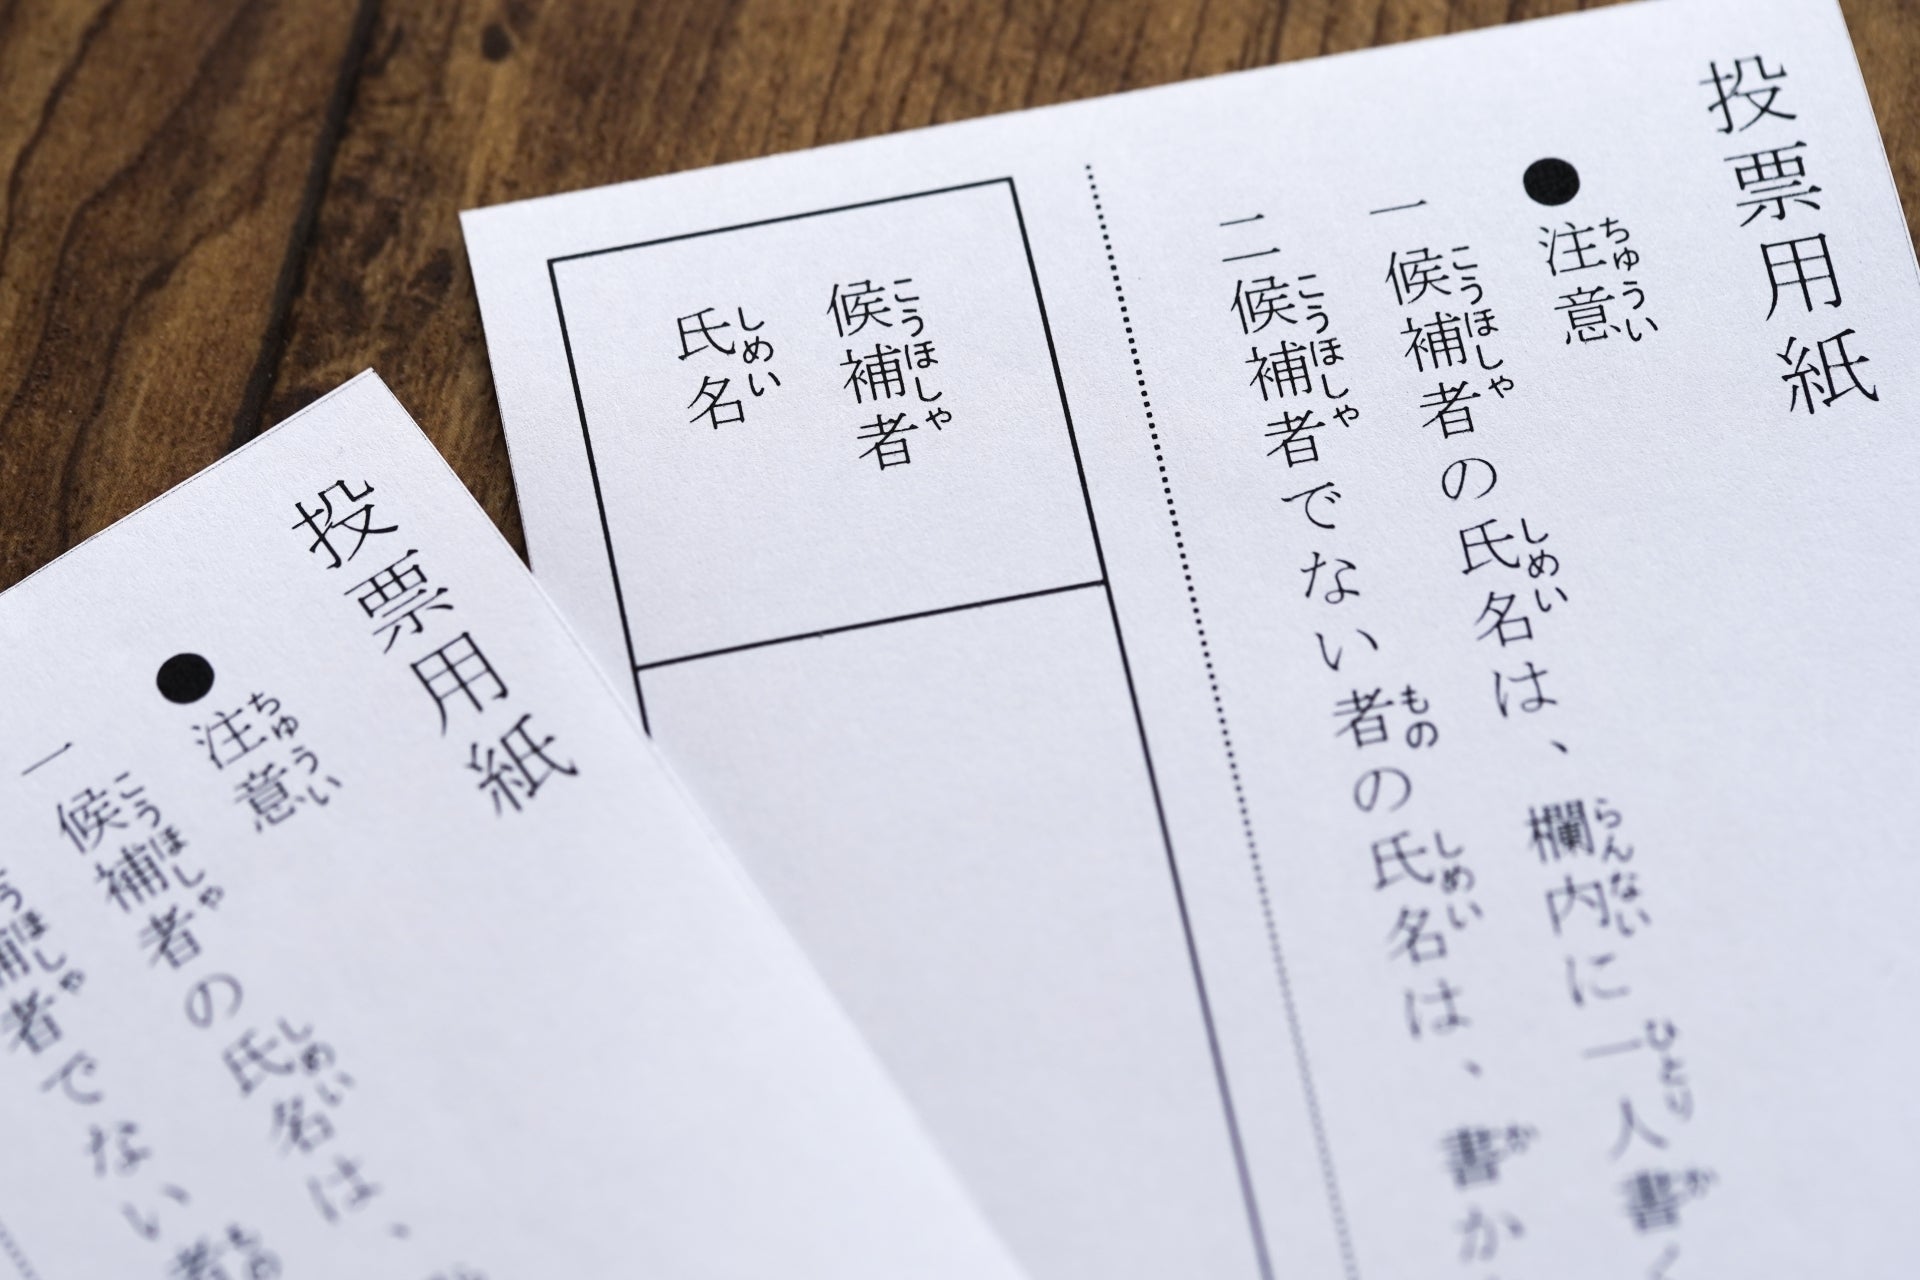 投票用紙
●注意
ちゅうい
一 候補者の氏名は、欄内に一人書く
こうほしゃ しめい らんない ひとり か
二 候補者でない者の氏名は、書か
こうほしゃ もの しめい か
候補者
こうほしゃ
氏名
しめい
投票用紙
●注意
ちゅうい
一 候補者の氏名は、
こうほしゃ しめい
補者でない者
うほしゃ もの